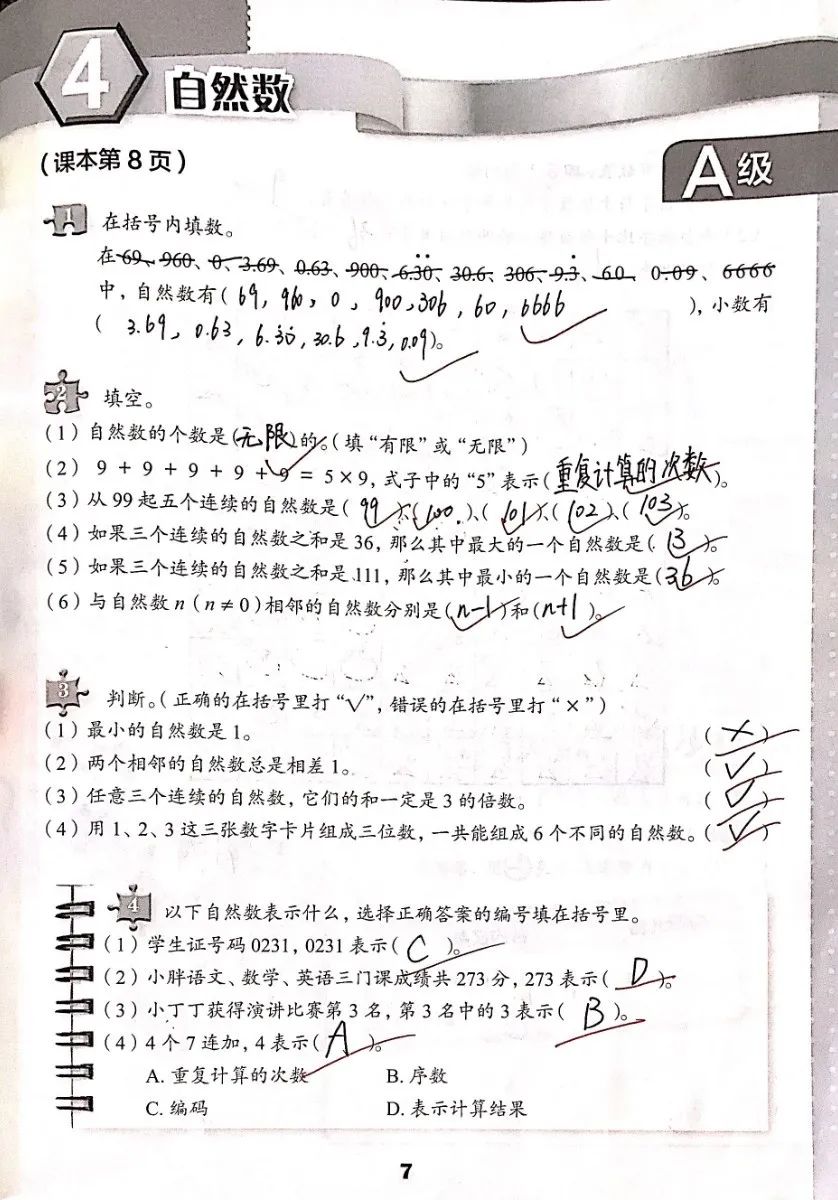 4 自然数
(课本第8页)
A级
1 在括号内填数。
在69、960、0、3.69、0.63、900、6.3̇0̇、30.6、306、9.3̇、60、0.09、6666
中,自然数有(69,960,0,900,306,60,6666),小数有
(3.69,0.63,6.3̇0̇,30.6,9.3̇,0.09)。
2 填空。
(1)自然数的个数是(无限)的。(填“有限”或“无限”)
(2)9+9+9+9+9=5×9,式子中的“5”表示(重复计算的次数)。
(3)从99起五个连续的自然数是(99)、(100)、(101)、(102)、(103)。
(4)如果三个连续的自然数之和是36,那么其中最大的一个自然数是(13)。
(5)如果三个连续的自然数之和是111,那么其中最小的一个自然数是(36)。
(6)与自然数n(n≠0)相邻的自然数分别是(n-1)和(n+1)。
3 判断。(正确的在括号里打“√”,错误的在括号里打“×”)
(1)最小的自然数是1。(×)
(2)两个相邻的自然数总是相差1。(√)
(3)任意三个连续的自然数,它们的和一定是3的倍数。(√)
(4)用1、2、3这三张数字卡片组成三位数,一共能组成6个不同的自然数。(√)
4 以下自然数表示什么,选择正确答案的编号填在括号里。
(1)学生证号码0231,0231表示(C)。
(2)小胖语文、数学、英语三门课成绩共273分,273表示(D)。
(3)小丁丁获得演讲比赛第3名,第3名中的3表示(B)。
(4)4个7连加,4表示(A)。
A. 重复计算的次数 B. 序数
C. 编码 D. 表示计算结果
7